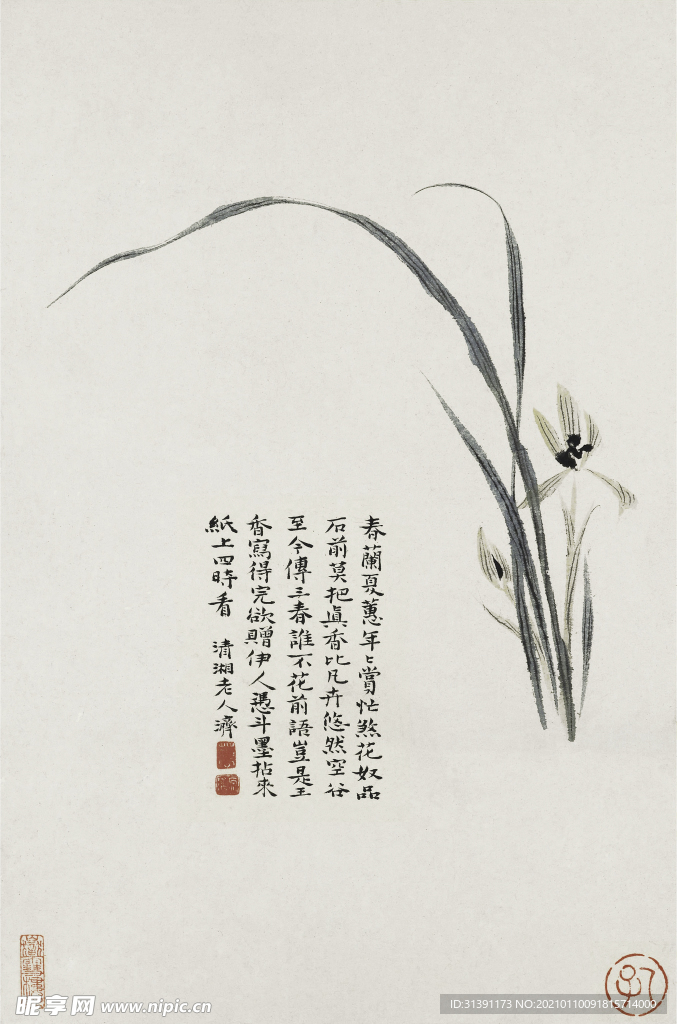 春蘭夏蕙年〻賞忙煞花奴品
石前莫把真香比凡卉悠然空谷
至今傳三春誰不花前語豈是王
香寫得完欲贈伊人憑斗墨拈來
紙上四時看 清湘老人濟
昵享网 www.nipic.cn
ID:31391173 NO:20210110091815714000